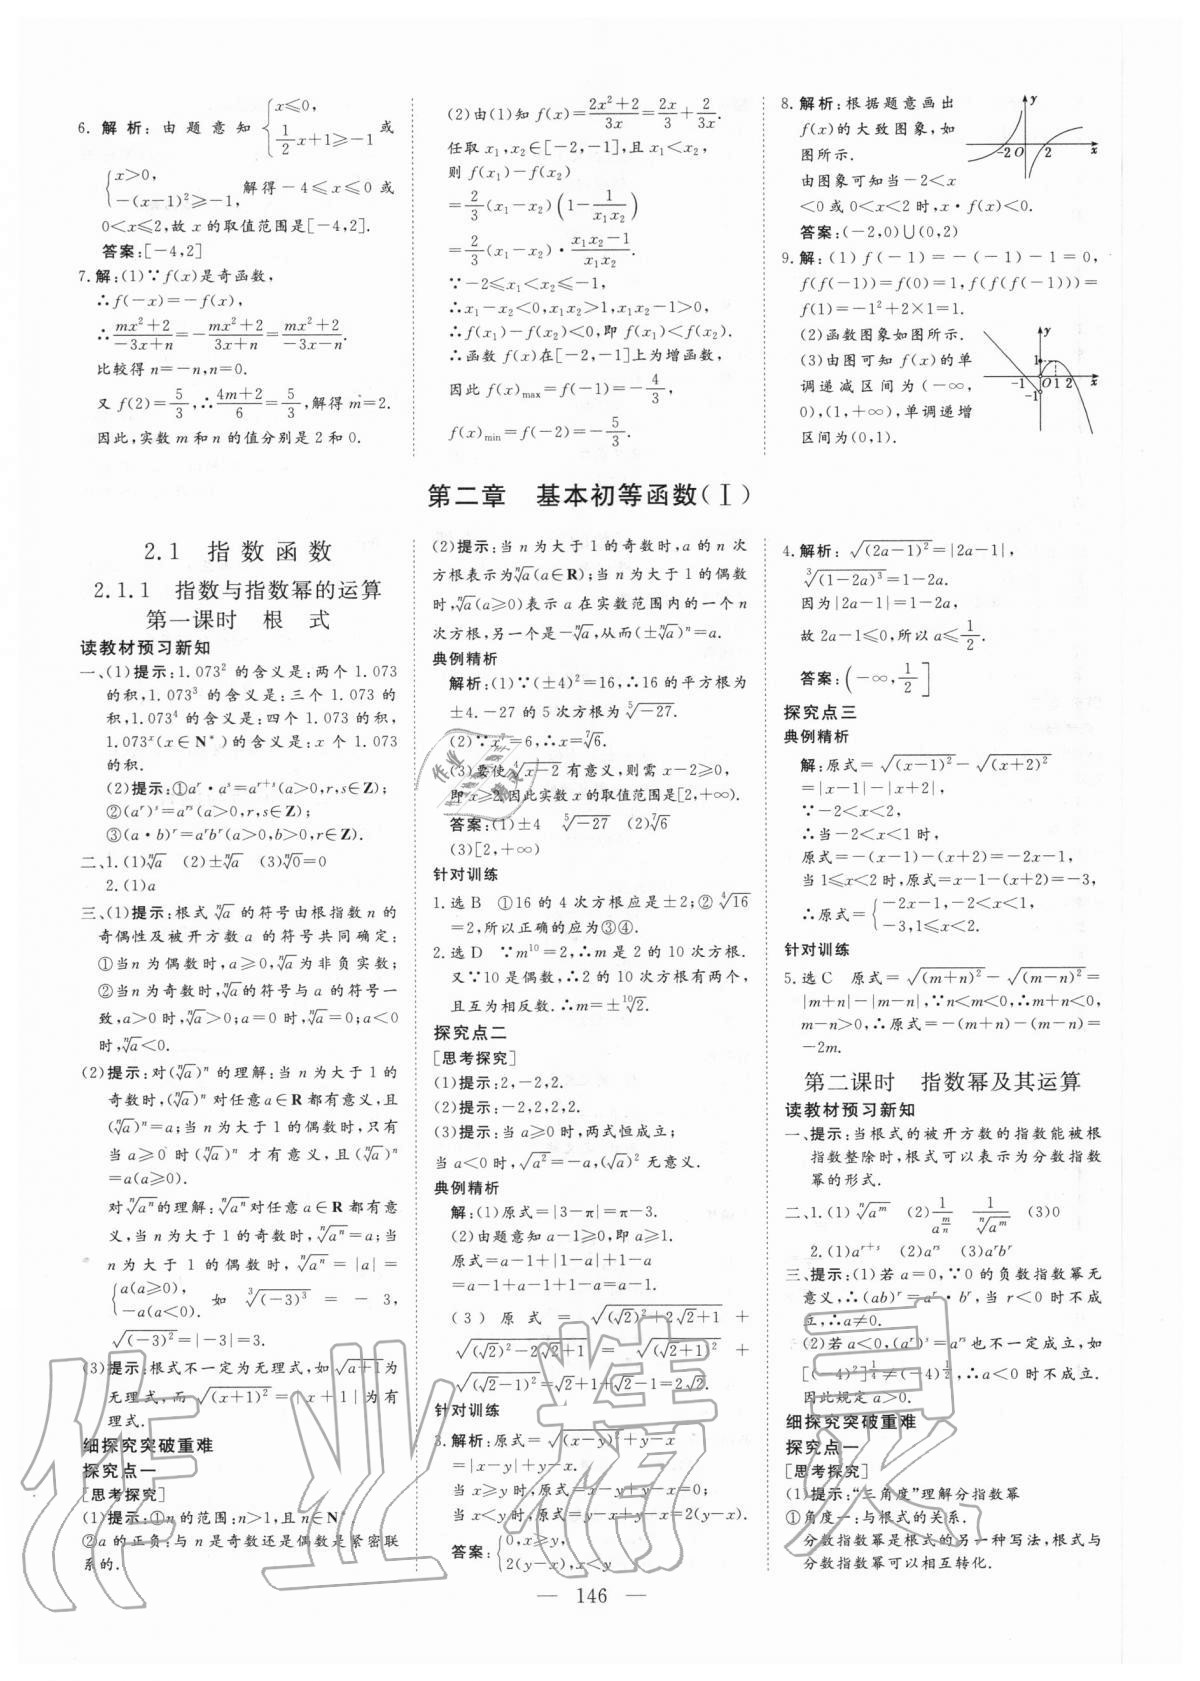 6. 解析:由题意知{x≤0, 1/2x+1≥-1 或
{x>0, -(x-1)²≥-1, 解得-4≤x≤0或
0<x≤2,故x的取值范围是[-4,2].
答案:[-4,2]
7. 解:(1)∵f(x)是奇函数,
∴f(-x)=-f(x),
∴(mx²+2)/(-3x+n)=-(mx²+2)/(3x+n)=(mx²+2)/(-3x-n).
比较得n=-n,n=0.
又f(2)=5/3,∴(4m+2)/6=5/3,解得m=2.
因此,实数m和n的值分别是2和0.
(2)由(1)知f(x)=(2x²+2)/3x=2x/3+2/3x.
任取x₁,x₂∈[-2,-1],且x₁<x₂,
则f(x₁)-f(x₂)
=2/3(x₁-x₂)(1-1/(x₁x₂))
=2/3(x₁-x₂)·(x₁x₂-1)/(x₁x₂).
∵-2≤x₁<x₂≤-1,
∴x₁-x₂<0,x₁x₂>1,x₁x₂-1>0,
∴f(x₁)-f(x₂)<0,即f(x₁)<f(x₂).
∴函数f(x)在[-2,-1]上为增函数,
因此f(x)max=f(-1)=-4/3,
f(x)min=f(-2)=-5/3.
8. 解析:根据题意画出
f(x)的大致图象,如
图所示.
由图象可知当-2<x
<0或0<x<2时,x·f(x)<0.
答案:(-2,0)∪(0,2)
y
-2 O 2 x
9. 解:(1)f(-1)=-(-1)-1=0,
f(f(-1))=f(0)=1,f(f(f(-1)))=
f(1)=-1²+2×1=1.
(2)函数图象如图所示.
(3)由图可知f(x)的单
调递减区间为(-∞,
0),(1,+∞),单调递增
区间为(0,1).
y
1
-1 O 1 2 x
-1
第二章 基本初等函数(Ⅰ)
2.1 指数函数
2.1.1 指数与指数幂的运算
第一课时 根 式
读教材预习新知
一、(1)提示:1.073²的含义是:两个1.073
的积,1.073³的含义是:三个1.073的
积,1.073⁴的含义是:四个1.073的积,
1.073ˣ(x∈N*)的含义是:x个1.073
的积.
(2)提示:①aʳ·aˢ=aʳ⁺ˢ(a>0,r,s∈Z);
②(aʳ)ˢ=aʳˢ(a>0,r,s∈Z);
③(a·b)ʳ=aʳbʳ(a>0,b>0,r∈Z).
二、1.(1)ⁿ√a (2)±ⁿ√a (3)ⁿ√0=0
2.(1)a
三、(1)提示:根式ⁿ√a的符号由根指数n的
奇偶性及被开方数a的符号共同确定:
①当n为偶数时,a≥0,ⁿ√a为非负实数;
②当n为奇数时,ⁿ√a的符号与a的符号一
致,a>0时,ⁿ√a>0;a=0时,ⁿ√a=0;a<0
时,ⁿ√a<0.
(2)提示:对(ⁿ√a)ⁿ的理解:当n为大于1的
奇数时,(ⁿ√a)ⁿ对任意a∈R都有意义,且
(ⁿ√a)ⁿ=a;当n为大于1的偶数时,只有
当a≥0时(ⁿ√a)ⁿ才有意义,且(ⁿ√a)ⁿ
=a(a≥0).
对ⁿ√(aⁿ)的理解:ⁿ√(aⁿ)对任意a∈R都有意
义,当n为大于1的奇数时,ⁿ√(aⁿ)=a;当
n为大于1的偶数时,ⁿ√(aⁿ)=|a|=
{a(a≥0), -a(a<0). 如³√((-3)³)=-3,
√((-3)²)=|-3|=3.
(3)提示:根式不一定为无理式,如√(a+1)为
无理式,而√((x+1)²)=|x+1|为有
理式.
细探究突破重难
探究点一
[思考探究]
(1)提示:①n的范围:n>1,且n∈N*.
②a的正负:与n是奇数还是偶数是紧密联
系的.
(2)提示:当n为大于1的奇数时,a的n次
方根表示为ⁿ√a(a∈R);当n为大于1的偶数
时,ⁿ√a(a≥0)表示a在实数范围内的一个n
次方根,另一个是-ⁿ√a,从而(±ⁿ√a)ⁿ=a.
典例精析
解析:(1)∵(±4)²=16,∴16的平方根为
±4.-27的5次方根为⁵√-27.
(2)∵x⁷=6,∴x=⁷√6.
(3)要使⁴√(x-2)有意义,则需x-2≥0,
即x≥2.因此实数x的取值范围是[2,+∞).
答案:(1)±4 ⁵√-27 (2)⁷√6
(3)[2,+∞)
针对训练
1. 选B ①16的4次方根应是±2;②⁴√16
=2,所以正确的应为③④.
2. 选D ∵m¹⁰=2,∴m是2的10次方根.
又∵10是偶数,∴2的10次方根有两个,
且互为相反数.∴m=±¹⁰√2.
探究点二
[思考探究]
(1)提示:2,-2,2.
(2)提示:-2,2,2,2.
(3)提示:当a≥0时,两式恒成立;
当a<0时,√(a²)=-a,(√a)²无意义.
典例精析
解:(1)原式=|3-π|=π-3.
(2)由题意知a-1≥0,即a≥1.
原式=a-1+|1-a|+1-a
=a-1+a-1+1-a=a-1.
(3)原式=√((√2)²+2√2+1)+
√((√2)²-2√2+1)=√((√2+1)²)+
√((√2-1)²)=√2+1+√2-1=2√2.
针对训练
3. 解析:原式=√((x-y)²)+y-x
=|x-y|+y-x.
当x≥y时,原式=x-y+y-x=0;
当x<y时,原式=y-x+y-x=2(y-x).
答案:{0,x≥y, 2(y-x),x<y
4. 解析:√((2a-1)²)=|2a-1|,
³√((1-2a)³)=1-2a.
因为|2a-1|=1-2a,
故2a-1≤0,所以a≤1/2.
答案:(-∞,1/2]
探究点三
典例精析
解:原式=√((x-1)²)-√((x+2)²)
=|x-1|-|x+2|,
∵-2<x<2,
∴当-2<x<1时,
原式=-(x-1)-(x+2)=-2x-1,
当1≤x<2时,原式=x-1-(x+2)=-3,
∴原式={-2x-1,-2<x<1, -3,1≤x<2.
针对训练
5. 选C 原式=√((m+n)²)-√((m-n)²)=
|m+n|-|m-n|,∵n<m<0,∴m+n<0,
m-n>0,∴原式=-(m+n)-(m-n)=
-2m.
第二课时 指数幂及其运算
读教材预习新知
一、提示:当根式的被开方数的指数能被根
指数整除时,根式可以表示为分数指数
幂的形式.
二、1.(1)ⁿ√(aᵐ) (2)1/a^(m/n) 1/ⁿ√(aᵐ) (3)0
2.(1)aʳ⁺ˢ (2)aʳˢ (3)aʳbʳ
三、提示:(1)若a=0,∵0的负数指数幂无
意义,∴(ab)ʳ=aʳ·bʳ,当r<0时不成
立,∴a≠0.
(2)若a<0,(aʳ)ˢ=aʳˢ也不一定成立,如
[(-4)²]^(1/4)≠(-4)^(1/2),∴a<0时不成立.
因此规定a>0.
细探究突破重难
探究点一
[思考探究]
(1)提示:“三角度”理解分指数幂
①角度一:与根式的关系.
分数指数幂是根式的另一种写法,根式与
分数指数幂可以相互转化.
— 146 —
作业精灵